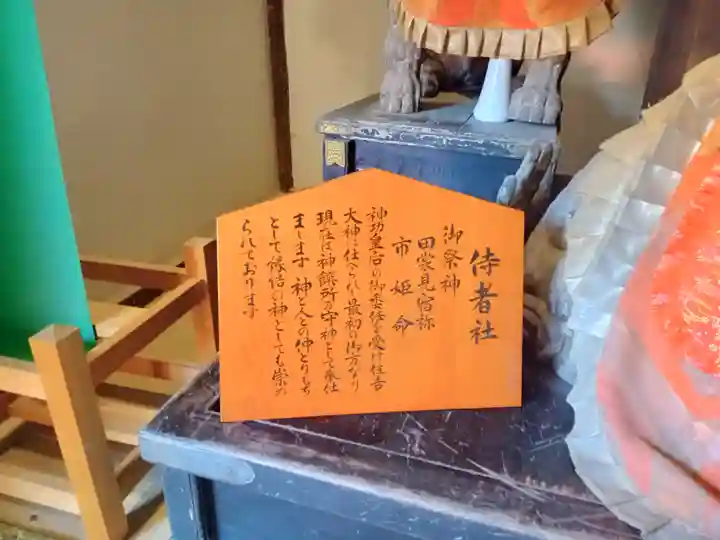 侍者社
御祭神
田裳見宿祢
市姫命
神功皇后の御委任を受け住吉
大神に仕へられた最初の御方なり
現在は神館所の守神として奉仕
まします 神と人との仲とりもち
として縁結の神としても崇め
られております